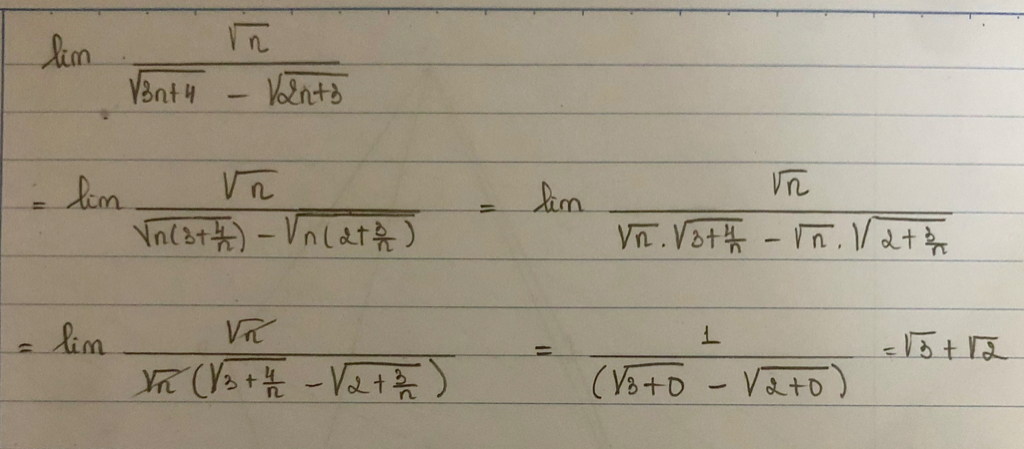 lim √n / (√(3n+4) − √(2n+3))
= lim √n / (√(n(3+4/n)) − √(n(2+3/n))) = lim √n / (√n . √(3+4/n) − √n . √(2+3/n))
= lim √n / (√n (√(3+4/n) − √(2+3/n))) = 1 / (√(3+0) − √(2+0)) = √3 + √2